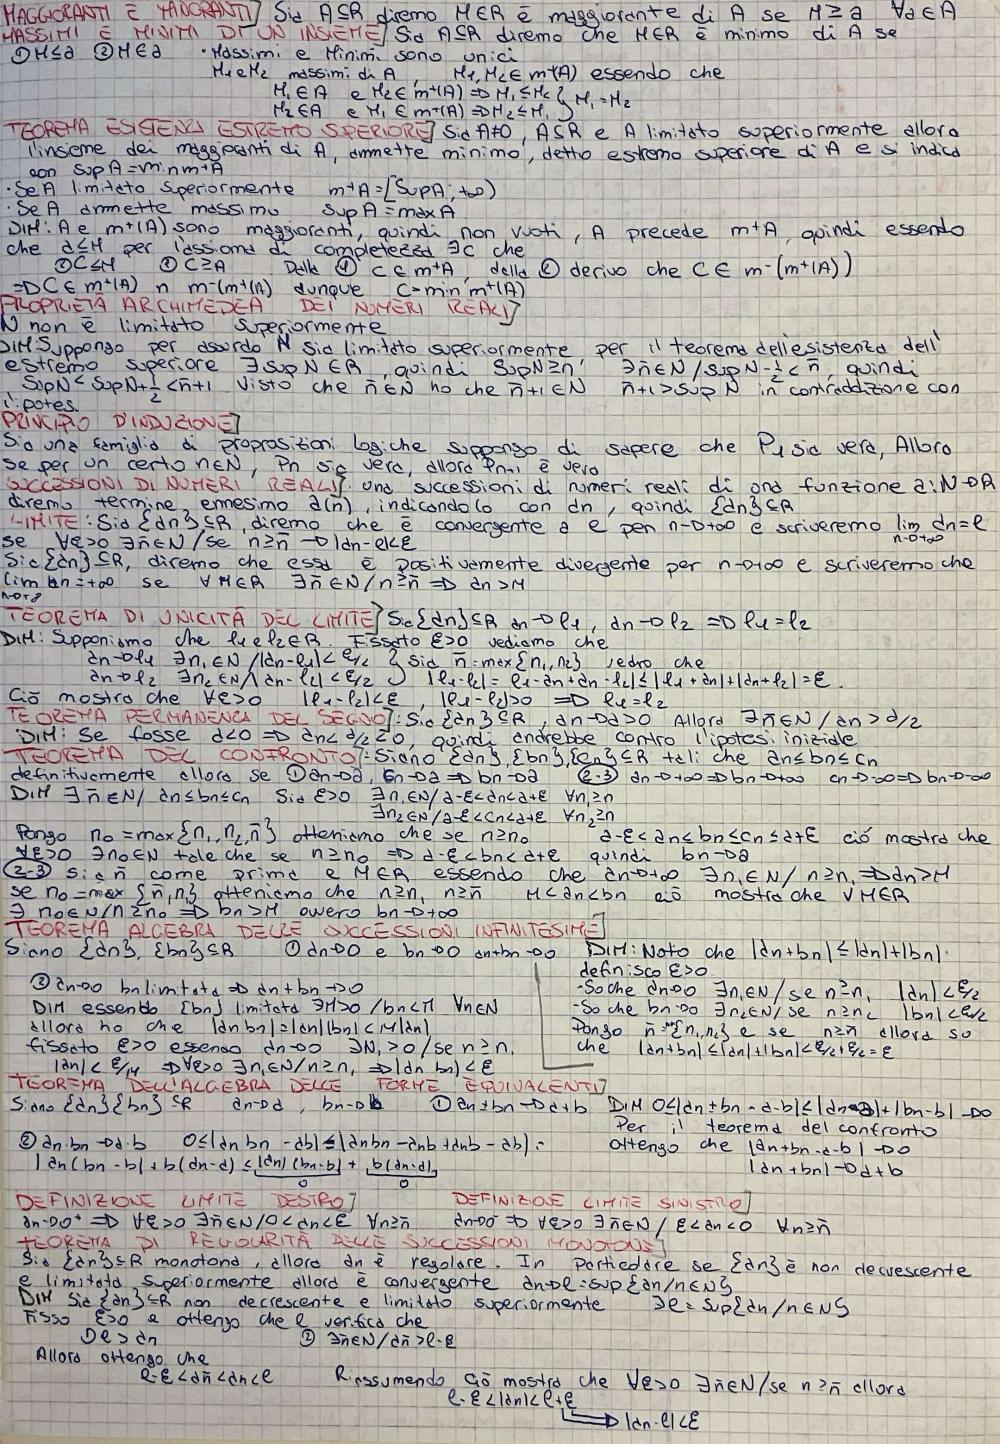 MAGGIORANTI E MINORANTI] Sia A⊆R diremo M∈R è maggiorante di A se M≥a ∀a∈A
MASSIMI E MINIMI DI UN INSIEME] Sia A⊆R diremo che M∈R è minimo di A se
①M≤a ②M∈a · Massimi e Minimi sono unici
M₁ e M₂ massimi di A, M₁,M₂∈ m⁺(A) essendo che
M₁∈A e M₂∈m⁺(A) ⇒ M₁≤M₂ } M₁=M₂
M₂∈A e M₁∈m⁺(A) ⇒ M₂≤M₁
TEOREMA ESISTENZA ESTREMO SUPERIORE] Sia A≠0, A⊆R e A limitato superiormente allora
l'insieme dei maggioranti di A, ammette minimo, detto estremo superiore di A e si indica
con SupA=minm⁺A
· Se A limitato superiormente m⁺A=[SupA;+∞)
· Se A ammette massimo supA=maxA
DIM: A e m⁺(A) sono maggioranti, quindi non vuoti, A precede m⁺A, quindi essendo
che a≤M per l'assioma di completezza ∃c che
①C≤M ②C≥A Dalla ① C∈m⁺A, della ② derivo che C∈ m⁻(m⁺(A))
⇒C∈m⁺(A) ∩ m⁻(m⁺(A)) dunque C=min m⁺(A)
PROPRIETÀ ARCHIMEDEA DEI NUMERI REALI]
N non è limitato superiormente
DIM: Suppongo per assurdo N sia limitato superiormente, per il teorema dell'esistenza dell'
estremo superiore ∃supN∈R, quindi SupN≥n ∃n̄∈N/supN-½<n̄, quindi
SupN<SupN+½<n̄+1 Visto che n̄∈N ho che n̄+1∈N n̄+1>SupN in contraddizione con
l'ipotesi.
PRINCIPIO D'INDUZIONE]
Sia una famiglia di proprosizioni logiche suppongo di sapere che P₁ sia vera, Allora
se per un certo n∈N, Pn sia vera, allora Pn+1 è vera
SUCCESSIONI DI NUMERI REALI]: una successioni di numeri reali di una funzione a:N→R
diremo termine ennesimo a(n), indicandolo con an, quindi {an}⊆R
LIMITE: Sia {an}⊆R, diremo che è convergente a l per n→+∞ e scriveremo lim an=l
n→+∞
se ∀ε>0 ∃n̄∈N/se n≥n̄ → |an-l|<ε
Sia {an}⊆R, diremo che essa è positivamente divergente per n→+∞ e scriveremo che
lim an=+∞ se ∀M∈R ∃n̄∈N/n≥n̄ ⇒ an>M
n→+∞
TEOREMA DI UNICITÀ DEL LIMITE] Sia{an}⊆R an→l₁, an→l₂ ⇒ l₁=l₂
DIM: Supponiamo che l₁ e l₂∈R. Fissato ε>0 vediamo che
an→l₁ ∃n₁∈N/|an-l₁|<ε/2 } sia n̄=max{n₁,n₂} vedro che
an→l₂ ∃n₂∈N/|an-l₂|<ε/2 |l₁-l₂|=l₁-an+an-l₂|≤|l₁+an|+|an+l₂|=ε.
Ciò mostra che ∀ε>0 |l₁-l₂|<ε, |l₁-l₂|>0 ⇒ l₁=l₂
TEOREMA PERMANENZA DEL SEGNO]: Sia {an}⊆R, an→a>0 Allora ∃n̄∈N/an>a/2
DIM: Se fosse a<0 ⇒ an<a/2≤0, quindi andrebbe contro l'ipotesi iniziale
TEOREMA DEL CONFRONTO]: Siano {an},{bn},{cn}⊆R tali che an≤bn≤cn
definitivamente allora se ①an→a, cn→a⇒bn→a ②-③ an→+∞⇒bn→+∞ cn→-∞⇒bn→-∞
DIM ∃n̄∈N/ an≤bn≤cn Sia ε>0 ∃n₁∈N/a-ε<an<a+ε ∀n₁≥n
∃n₂∈N/a-ε<cn<a+ε ∀n₂≥n
Pongo n₀=max{n₁,n₂,n̄} otteniamo che se n≥n₀ a-ε<an≤bn≤cn≤a+ε ciò mostra che
∀ε>0 ∃n₀∈N tale che se n≥n₀ ⇒ a-ε<bn<a+ε quindi bn→a
②-③ sia n̄ come prima e M∈R essendo che an→+∞ ∃n₁∈N/ n≥n₁⇒an>M
se n₀=max{n̄,n₁} otteniamo che n≥n₁ n≥n̄ M<an<bn ciò mostra che ∀M∈R
∃n₀∈N/n≥n₀ ⇒ bn>M ovvero bn→+∞
TEOREMA ALGEBRA DELLE SUCCESSIONI INFINITESIME]
Siano {an},{bn}⊆R ①an→0 e bn→0 an+bn→0
③an→0 bn limitata ⇒ an+bn→0
DIM essendo {bn} limitata ∃M>0/bn<M ∀n∈N
allora ho che |anbn|=|an||bn|<M|an|
fissato ε>0 essendo an→0 ∃N₁>0/se n≥n₁
|an|<ε/M ⇒∀ε>0 ∃n₁∈N/n≥n₁⇒|an bn|<ε
DIM: Noto che |an+bn|≤|an|+|bn|.
definisco ε>0
-So che an→0 ∃n₁∈N/se n≥n₁ |an|<ε/2
-So che bn→0 ∃n₂∈N/se n≥n₂ |bn|<ε/2
Pongo n̄={n₁,n₂} e se n≥n̄ allora so
che |an+bn|≤|an|+|bn|<ε/2+ε/2=ε
TEOREMA DELL'ALGEBRA DELLE FORME EQUIVALENTI]
Siano {an}{bn}⊆R an→a, bn→b ①an+bn→a+b DIM 0≤|an+bn-a-b|≤|an-a|+|bn-b|→0
Per il teorema del confronto
ottengo che |an+bn-a-b|→0
|an+bn|→a+b
②an·bn→a·b 0≤|anbn-ab|≤|anbn-anb+anb-ab|=
|an(bn-b)+b(an-a)≤|an|(bn-b)+b(an-a)|
0 0
DEFINIZIONE LIMITE DESTRO] DEFINIZIONE LIMITE SINISTRO]
an→0⁺ ⇒ ∀ε>0 ∃n̄∈N/0<an<ε ∀n≥n̄ an→0⁻ ⇒ ∀ε>0 ∃n̄∈N/ ε<an<0 ∀n≥n̄
TEOREMA DI REGOLARITÀ DELLE SUCCESSIONI MONOTONE]
Sia {an}⊆R monotona, allora an è regolare. In particolare se {an} è non decrescente
e limitata superiormente allora è convergente an→l=sup{an/n∈N}
DIM Sia {an}⊆R non decrescente e limitato superiormente ∃l=sup{an/n∈N}
Fisso ε>0 e ottengo che l verifica che
①l>an ②∃n̄∈N/an̄>l-ε
Allora ottengo che
l-ε<an̄<an<l Riassumendo ciò mostra che ∀ε>0 ∃n̄∈N/se n≥n̄ allora
l-ε<|an|<l+ε
|an-l|<ε